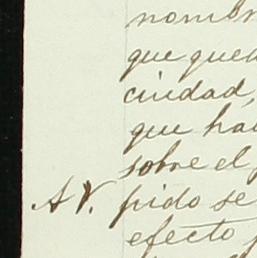 nombr
que qued
ciudad,
que ha
sobre el
A V. pido se
efecto